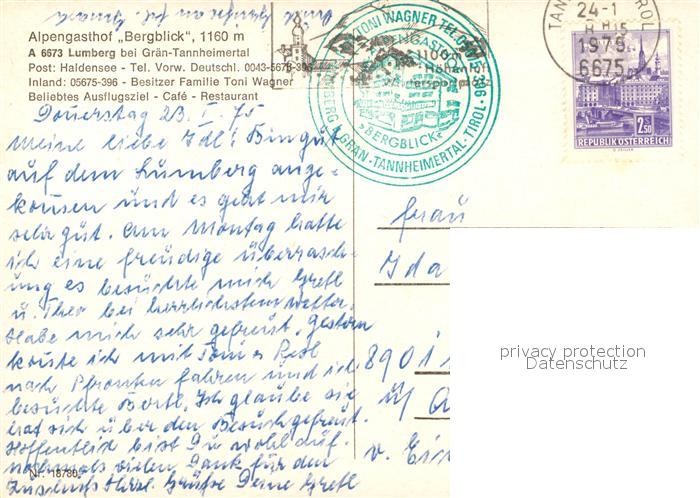 Alpengasthof „Bergblick“, 1160 m
A 6673 Lumberg bei Grän-Tannheimertal
Post: Haldensee - Tel. Vorw. Deutschl. 0043-5675-396
Inland: 05675-396 - Besitzer Familie Toni Wagner
Beliebtes Ausflugsziel - Café - Restaurant
Donerstag 23. I. 75
Meine liebe Idl! Bin gut
auf dem Lumberg ange-
komen und es geht mir
sehr gut. Am Montag hatte
ich eine freudige überrasch-
ung es besuchte mich Gretl
u. Theo bei herrlichstem Wetter.
Habe mich sehr gefreut. Gestern
konte ich mit Toni u Resl
nach Pfronten fahren und ich
besuchte Bertl. Ich glaube sie
hat sich über den Besuch gefreut.
Hoffentlich bist Du wohl auf.
nochmals vielen Dank für den
Grüße Deine Gretl
Nr. 18780
TONI WAGNER TEL.
ALPENGASTHOF
»BERGBLICK«
LUMBERG
GRÄN-TANNHEIMERTAL-TIROL
1100 m
Höhen
Wintersport
24-1
1975
6675
TIROL
2.50
REPUBLIK ÖSTERREICH
Frau
Ida
8901
v.
privacy protection
Datenschutz